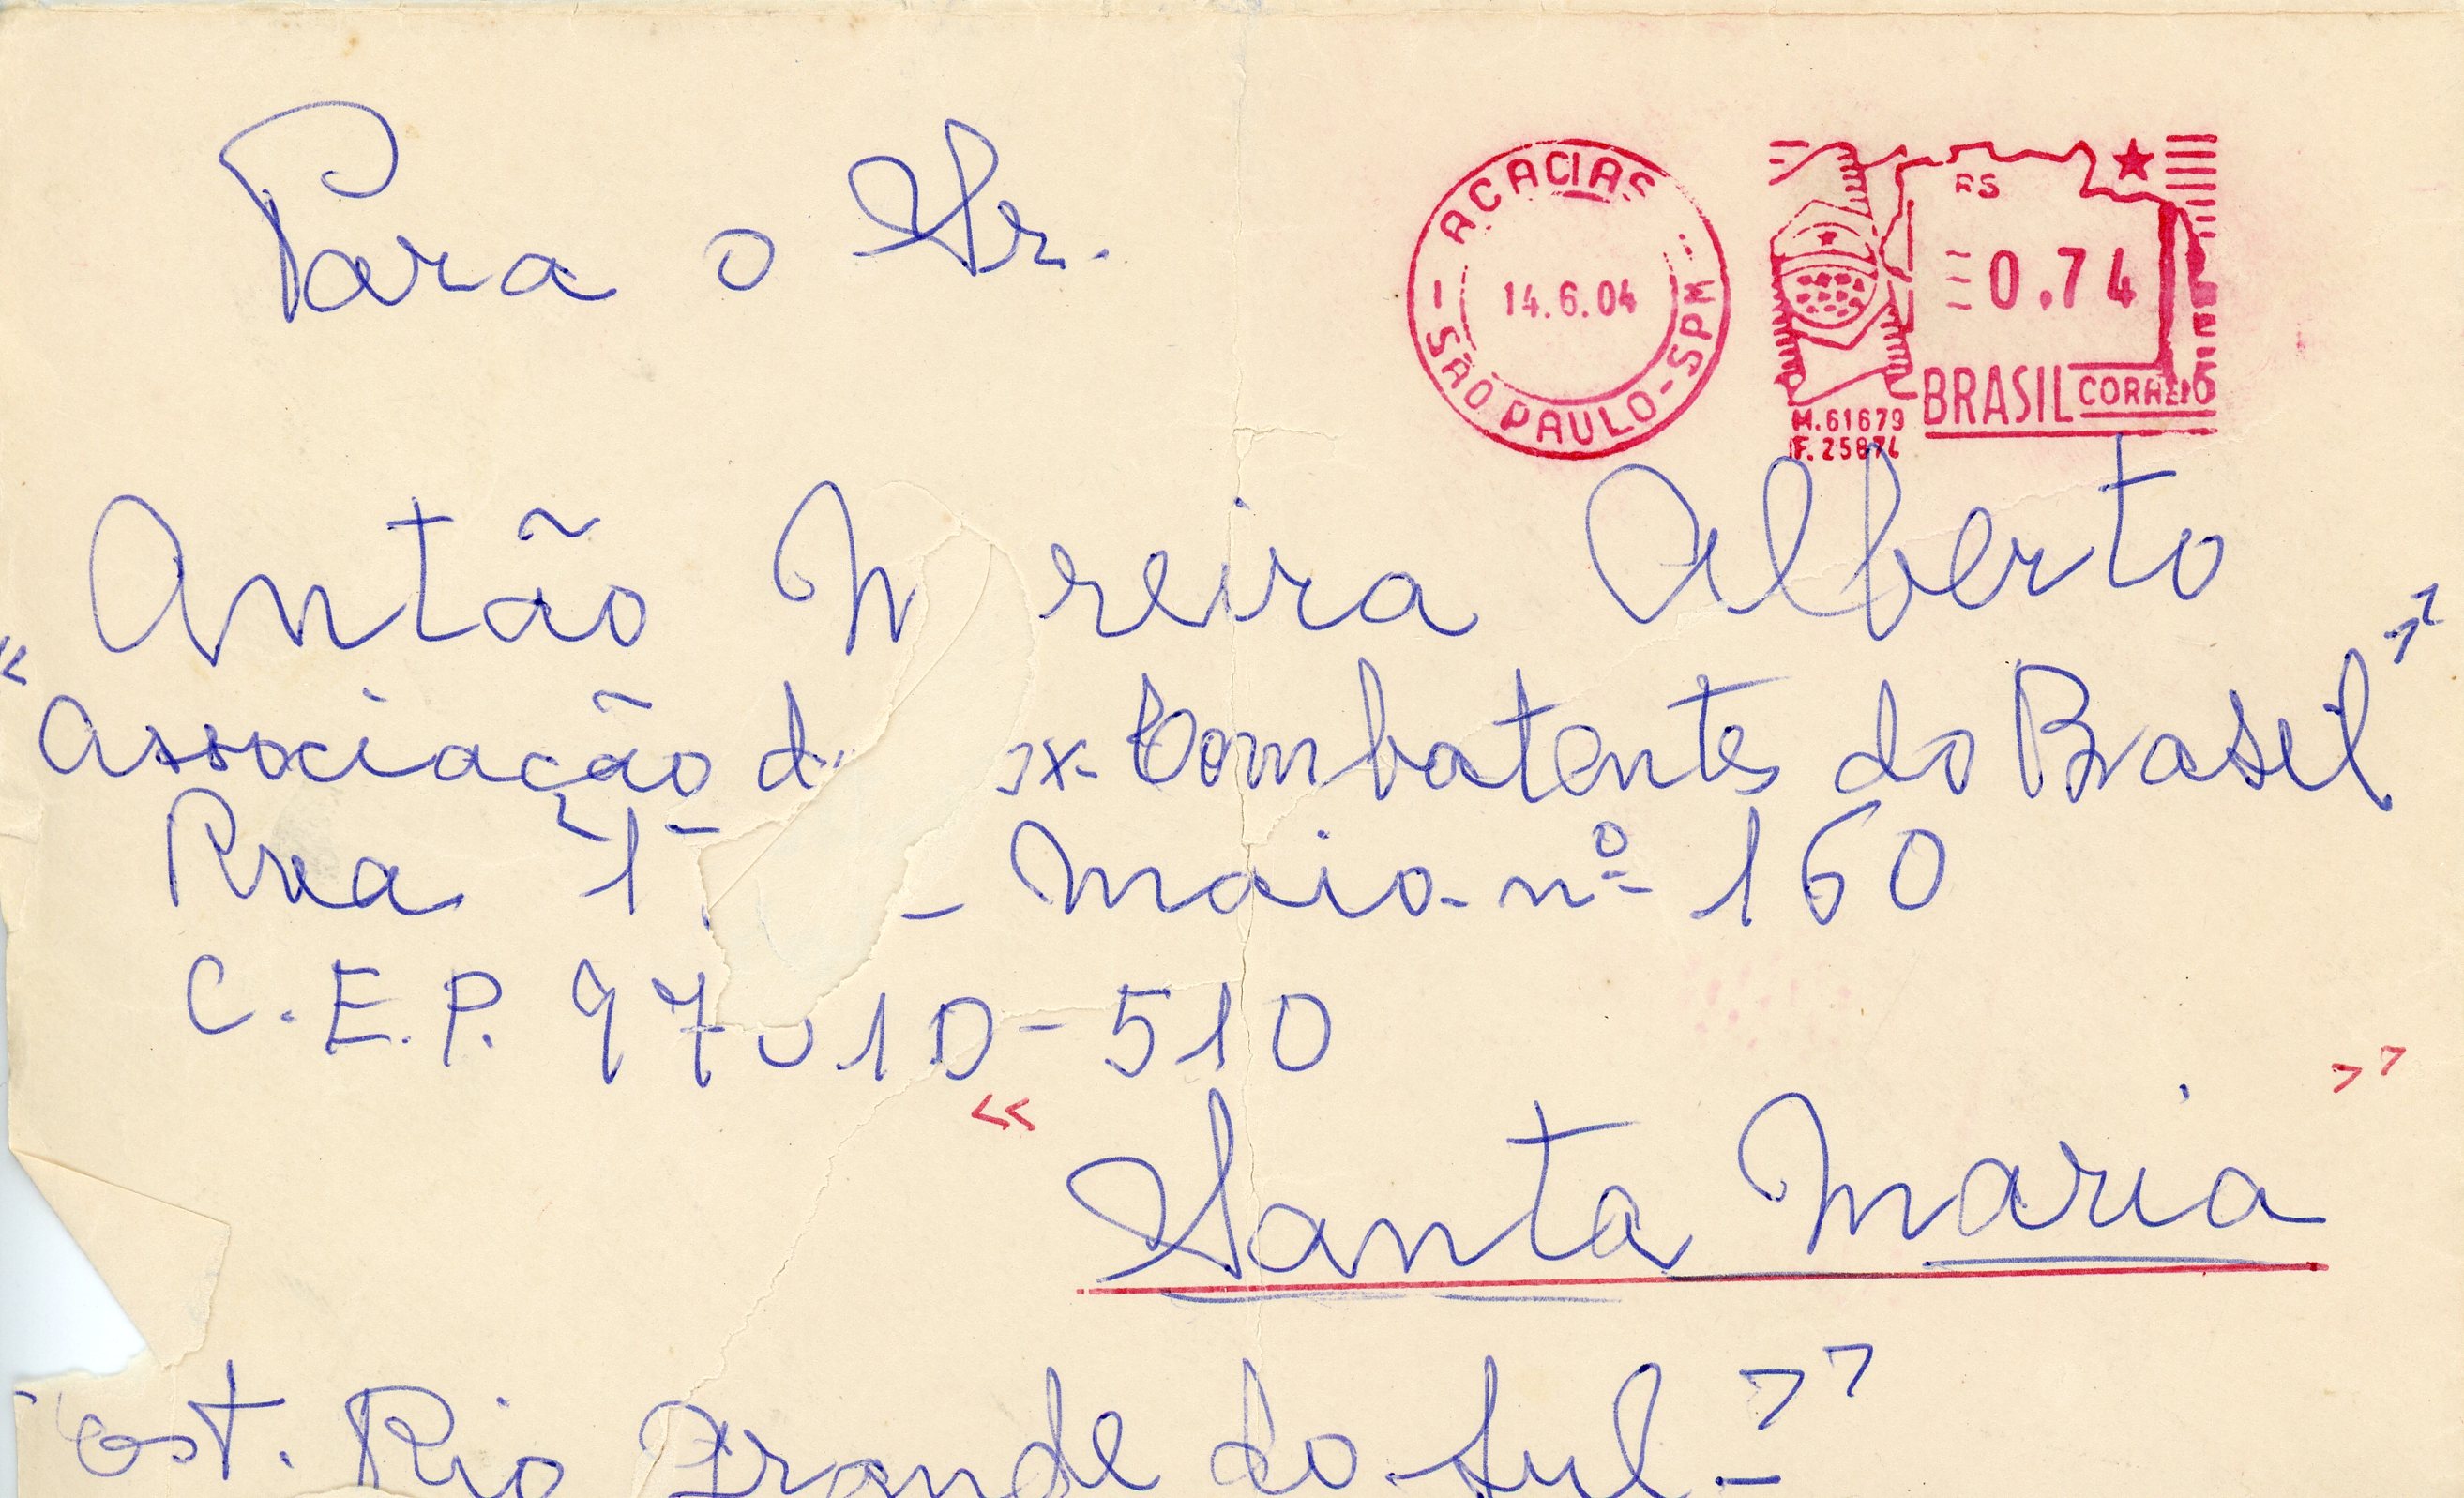 Para o Sr.
ACACIAS
SÃO PAULO-SPM
14.6.04
RS
0.74
BRASIL CORREIO
M.61679
F.25874
Antão M reira Alberto
"Associação d x-Combatentes do Brasil"
Rua 1º - Maio - nº 160
C.E.P. 97010-510
"Santa Maria"
"Est. Rio Grande do Sul-"